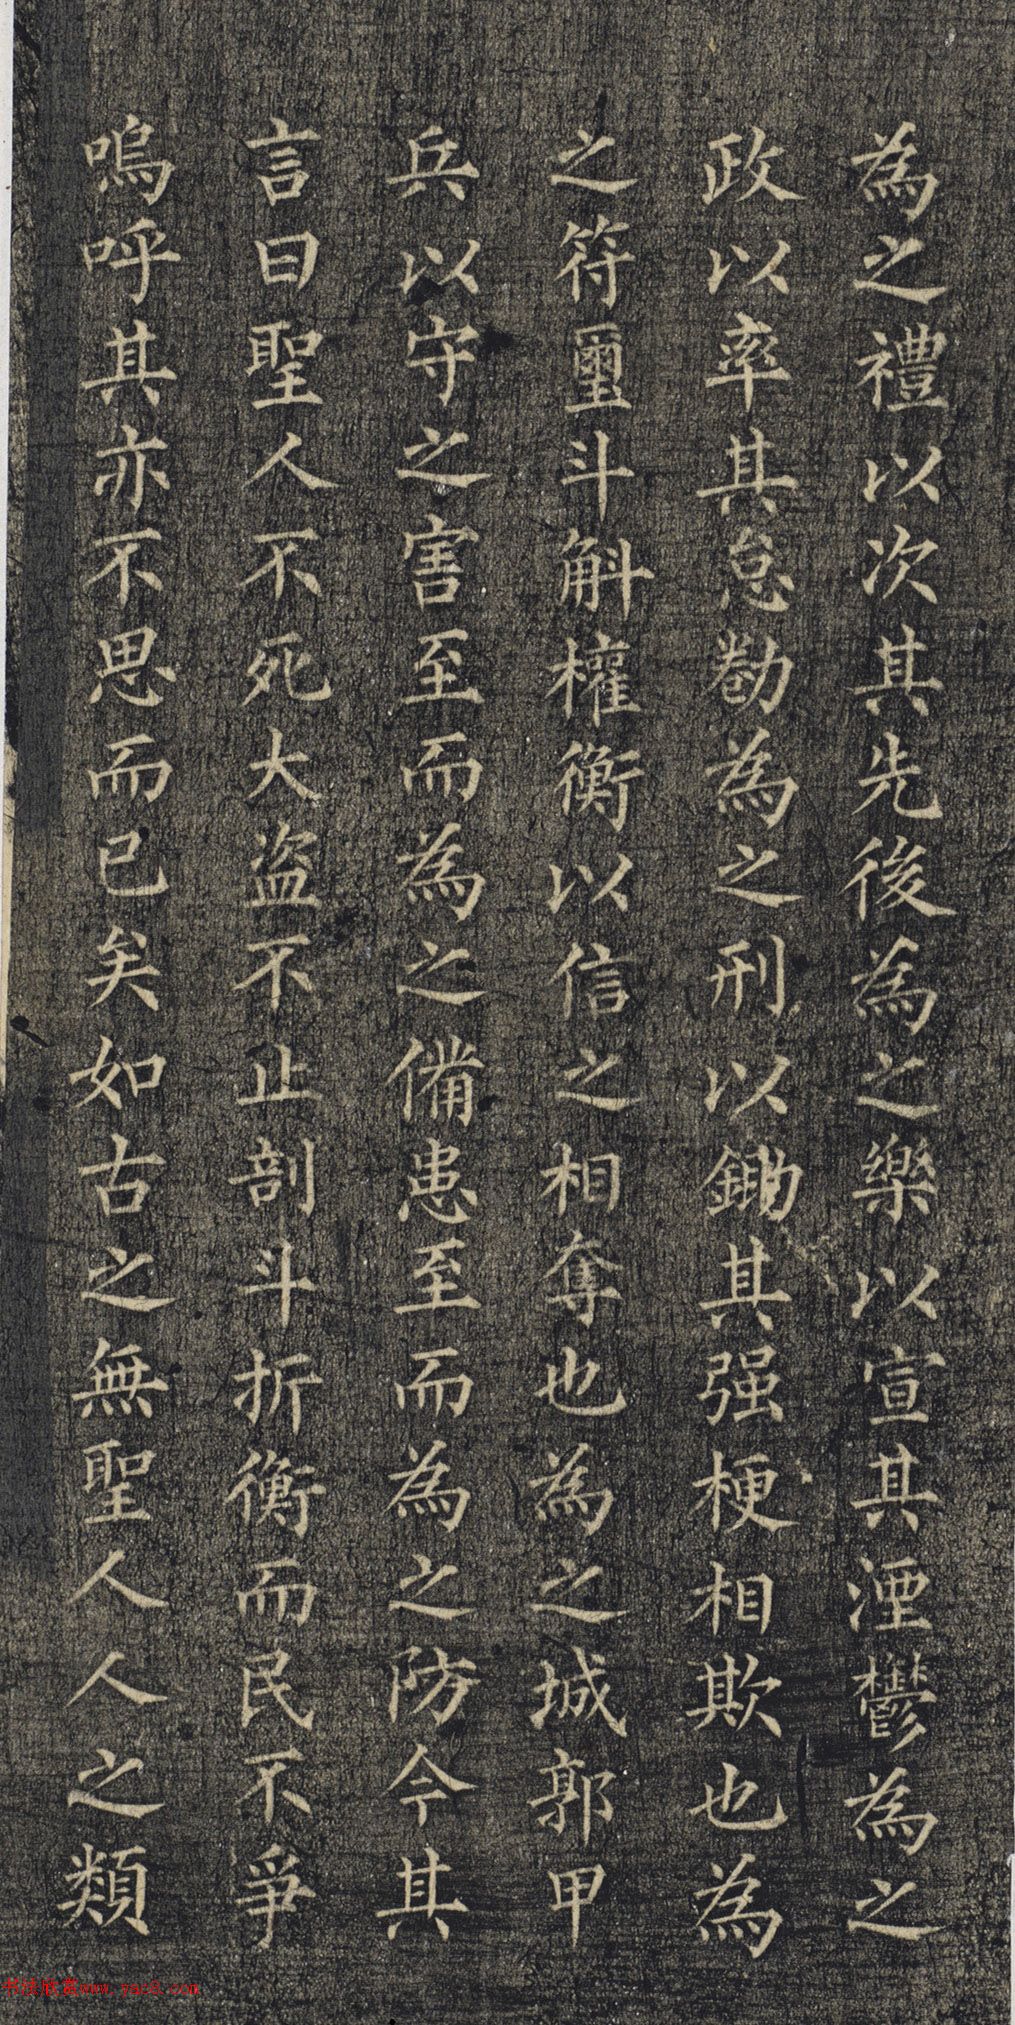 為之禮以次其先後為之樂以宣其湮鬱為之
政以率其怠勌為之刑以鋤其强梗相欺也為
之符璽斗斛權衡以信之相奪也為之城郭甲
兵以守之害至而為之備患至而為之防今其
言曰聖人不死大盗不止剖斗折衡而民不爭
嗚呼其亦不思而已矣如古之無聖人人之類
书法欣赏www.yac8.com